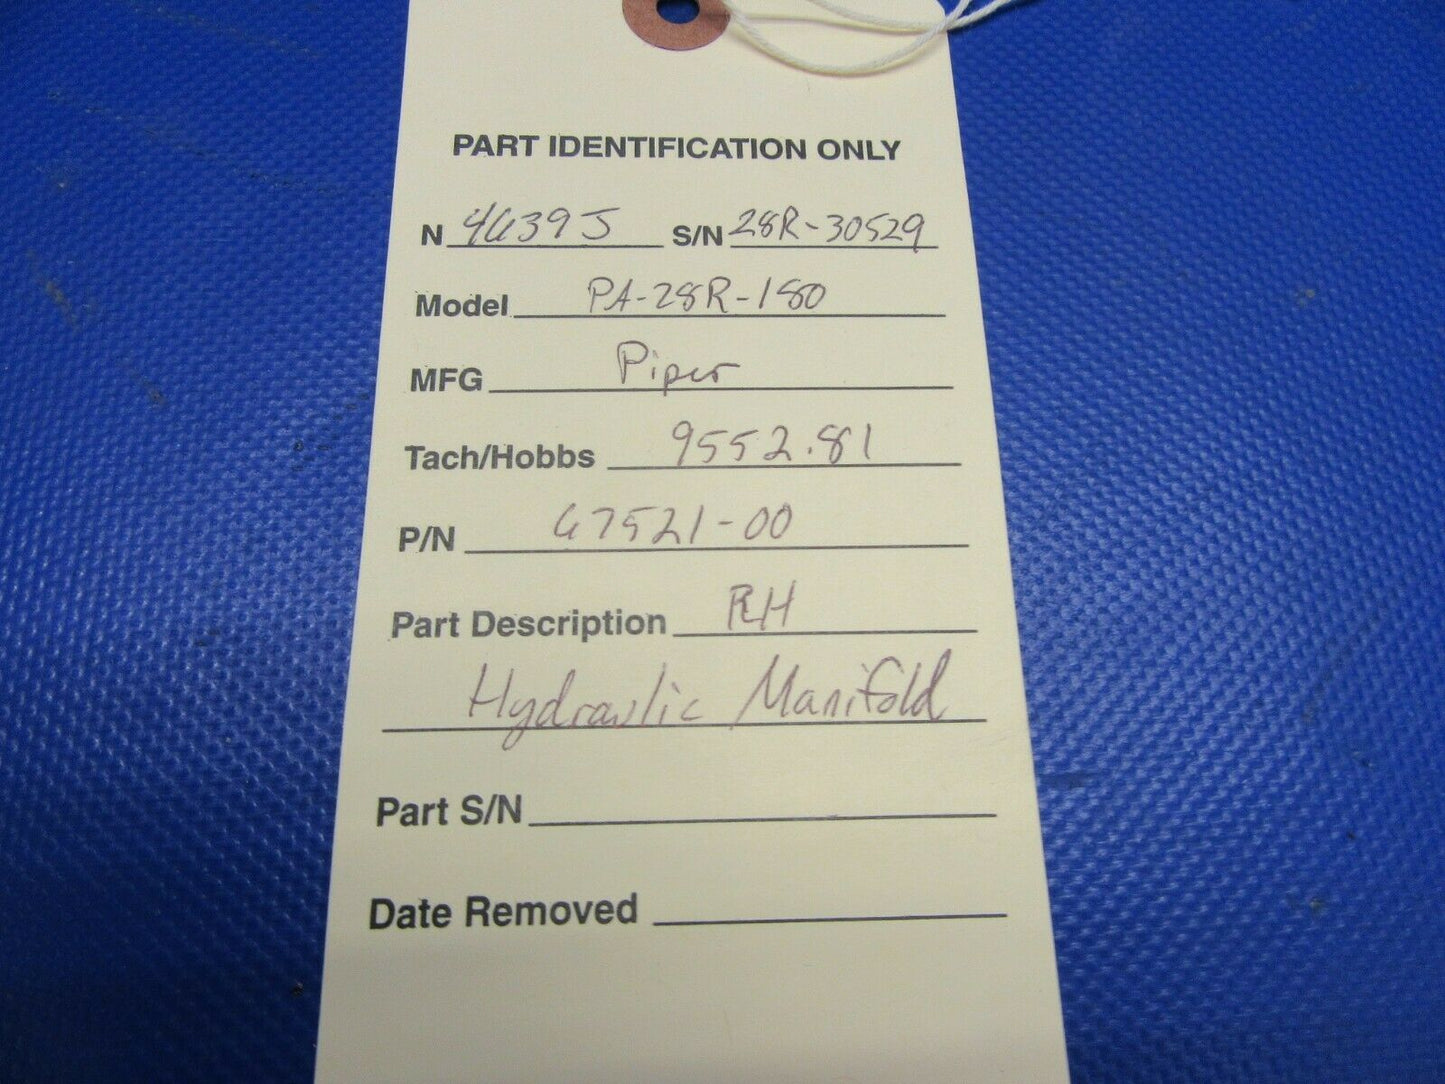 PART IDENTIFICATION ONLY
N 4639J S/N 28R-30529
Model PA-28R-180
MFG Piper
Tach/Hobbs 9552.81
P/N 67521-00
Part Description RH
Hydraulic Manifold
Part S/N
Date Removed